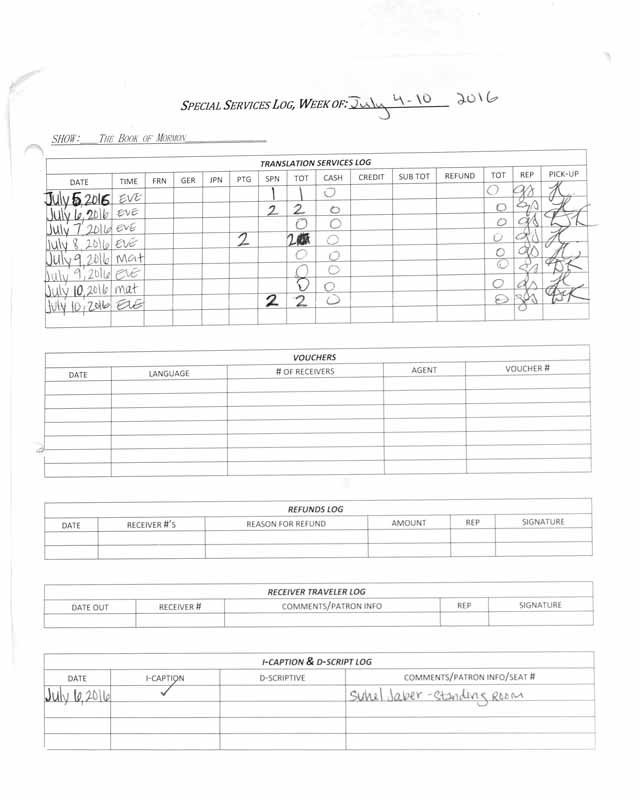 SPECIAL SERVICES LOG, WEEK OF: July 4-10 2016
SHOW: THE BOOK OF MORMON
TRANSLATION SERVICES LOG
DATE TIME FRN GER JPN PTG SPN TOT CASH CREDIT SUB TOT REFUND TOT REP PICK-UP
July 5, 2016 EVE 1 1 0 0 gs
July 6, 2016 EVE 2 2 0 0 gs
July 7, 2016 EVE 0 0 0 gs DK
July 8, 2016 EVE 2 2 0 0 gs
July 9, 2016 mat 0 0 0 gs
July 9, 2016 EVE 0 0 0 gs DK
July 10, 2016 mat 0 0 0 gs
July 10, 2016 EVE 2 2 0 0 gs DK
VOUCHERS
DATE LANGUAGE # OF RECEIVERS AGENT VOUCHER #
REFUNDS LOG
DATE RECEIVER #'S REASON FOR REFUND AMOUNT REP SIGNATURE
RECEIVER TRAVELER LOG
DATE OUT RECEIVER # COMMENTS/PATRON INFO REP SIGNATURE
I-CAPTION & D-SCRIPT LOG
DATE I-CAPTION D-SCRIPTIVE COMMENTS/PATRON INFO/SEAT #
July 6, 2016 ✓ Suhel Jaber - Standing Room